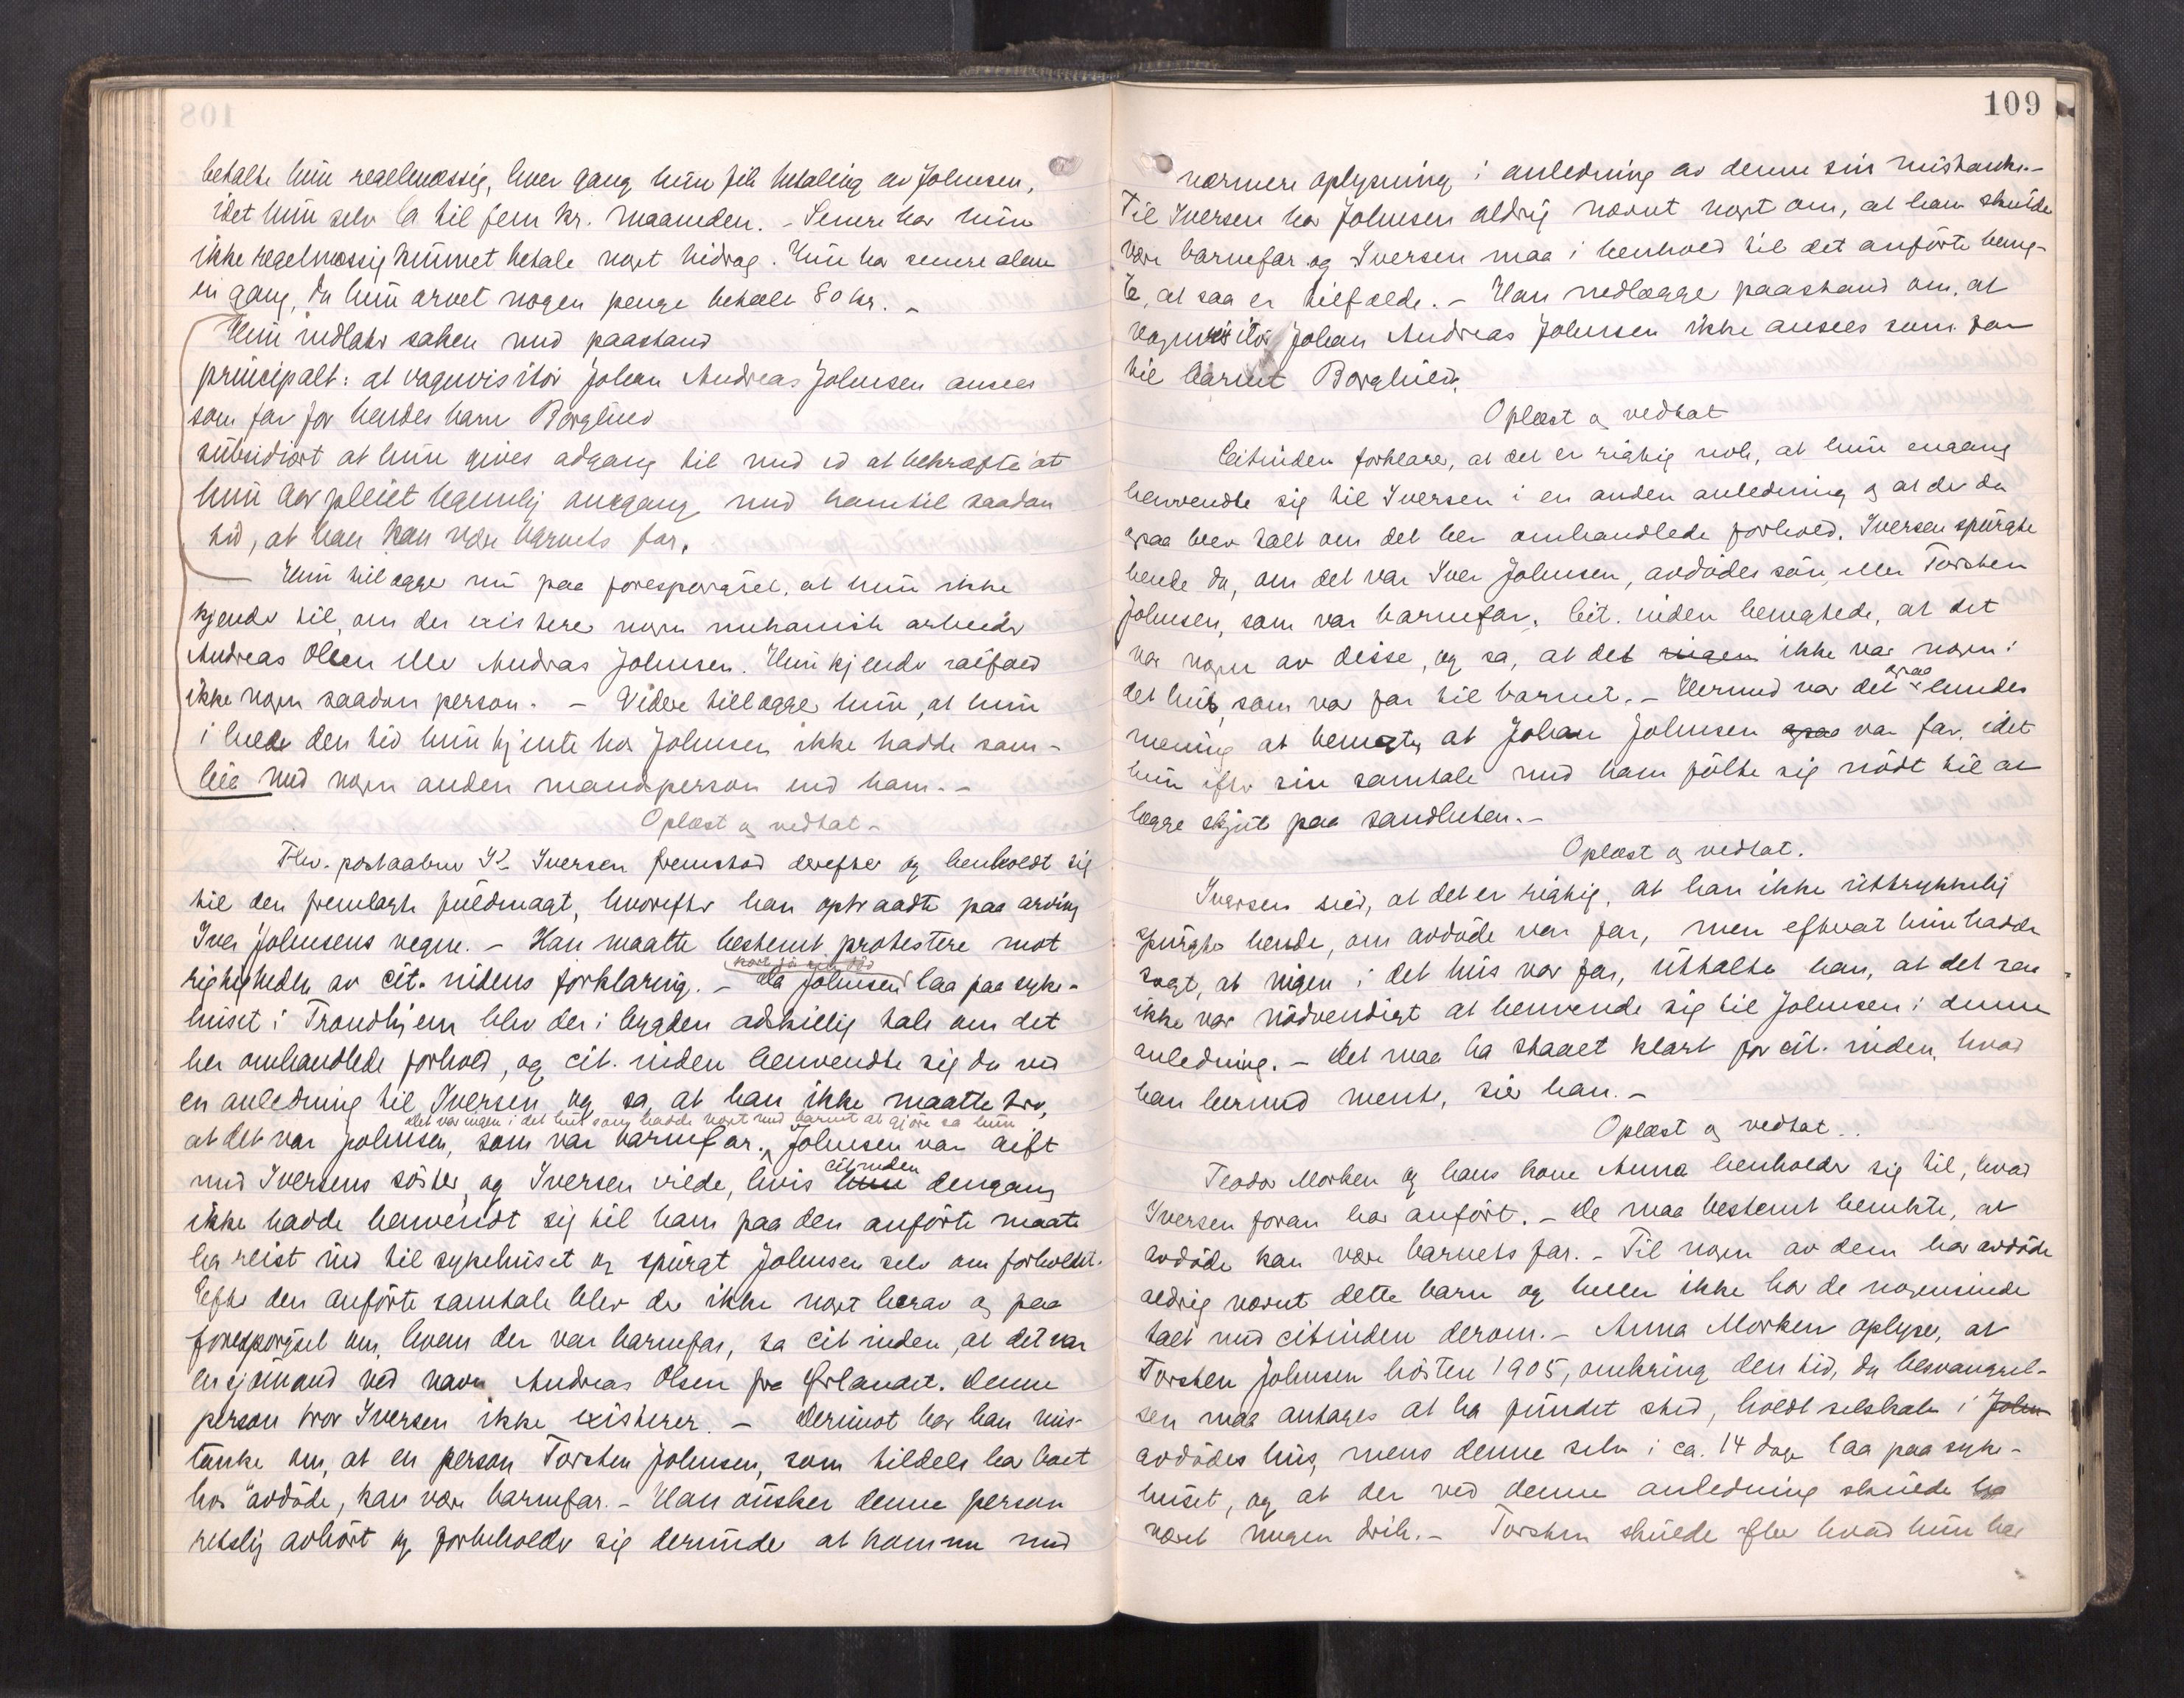 betalte hun regelmæssig, hver gang hun fik betaling av Johnsen,
idet hun selv la til fem kr. maaneden. - Senere har hun
ikke regelmæssig kunnet betale noget bidrag. Hun har senere alene
en gang, da hun arvet nogen penge betalt 80 kr. -
Hun indlater saken med paastand
principalt: at vognvisitør Johan Andreas Johnsen ansees
som far for hendes barn Borghild
subsidiært at hun gives adgang til med ed at bekræfte at
hun har pleiet legemlig omgang med ham til saadan
tid, at han kan være barnets far.
Hun tillægger nu paa forespørgsel, at hun ikke
kjender til, om der existerer nogen mekanisk arbeider
Andreas Olsen eller Andreas Johnsen. Hun kjender ialfald
ikke nogen saadan person. - Videre tillægger hun, at hun
i hele den tid hun kjente hos Johnsen ikke hadde sam-
leie med nogen anden mandsperson end ham. -
Oplæst og vedtat -
Fhv. postaabner Iversen fremstod derefter og henholdt sig
til den fremlagte fuldmagt, hvorefter han optraadte paa arving
Iver Johnsens vegne. - Han maatte bestemt protestere mot
rigtigheden av cit.indens forklaring. - Da Johnsen kort før sin død laa paa syke-
huset i Trondhjem blev der i bygden adskillig tale om det
her omhandlede forhold, og cit.inden henvendte sig da ved
en anledning til Iversen og sa, at han ikke maatte tro,
at det var Johnsen, som var barnefar. Det var ingen i det hus som hadde noget med barnet at gjøre sa hun Johnsen var gift
med Iversens søster, og Iversen vilde, hvis hun cit.inden dengang
ikke hadde henvendt sig til ham paa den anførte maate
ha reist ind til sykehuset og spurgt Johnsen selv om forholdet.
Efter den anførte samtale blev der ikke noget herav og paa
forespørgsel om, hvem der var barnefar, sa cit.inden, at det var
en sjømand ved navn Andreas Olsen fra Ørlandet. Denne
person tror Iversen ikke existerer. - Derimot har han mis-
tanke om, at en person Torsten Johnsen, som tildels har boet
hos avdøde, kan være barnefar. - Han ønsker denne person
retslig avhørt og forbeholder sig derunder at komme med
109
nærmere oplysning i anledning av denne sin mistanke. -
Til Iversen har Johnsen aldrig nævnt noget om, at han skulde
være barnefar og Iversen maa i henhold til det anførte benegt-
te, at saa er tilfælde. - Han nedlægger paastand om, at
vognvisitør Johan Andreas Johnsen ikke ansees som far
til barnet Borghild.
Oplæst og vedtat
Citinden forklarer, at det er rigtig nok, at hun engang
henvendte sig til Iversen i en anden anledning og at der da
ogsaa blev talt om det her omhandlede forhold. Iversen spurgte
hende da, om det var Iver Johnsen, avdødes søn, eller Torsten
Johnsen, som var barnefar. Cit.inden benegtede, at det
var nogen av disse, og sa, at det ingen ikke var nogen i
det hus, som var far til barnet. - Hermed var det ogsaa hendes
mening at benegte, at Johan Johnsen ogsaa var far, idet
hun efter sin samtale med ham følte sig nødt til at
lægge skjul paa sandheten. -
Oplæst og vedtat.
Iversen sier, at det er rigtig, at han ikke uttrykkelig
spurgte hende, om avdøde var far, men efterat hun hadde
sagt, at ingen i det hus var far, uttalte han, at det saa
ikke var nødvendigt at henvende sig til Johnsen i denne
anledning. - Det maa ha staaet klart for cit.inden, hvad
han hermed mente, sier han. -
Oplæst og vedtat.
Teodor Morken og hans kone Anna henholder sig til, hvad
Iversen foran har anført. - De maa bestemt benekte, at
avdøde kan være barnets far. - Til nogen av dem har avdøde
aldrig nævnt dette barn og heller ikke har de nogensinde
talt med citinden derom. - Anna Morken oplyser, at
Torsten Johnsen høsten 1905, omkring den tid, da besvangrel-
sen maa antages at ha fundet sted, holdt selskap i John
avdødes hus, mens denne selv i ca. 14 dage laa paa syke-
huset, og at der ved denne anledning skulde ha
været nogen drik. - Torsten skulde efter hvad hun har